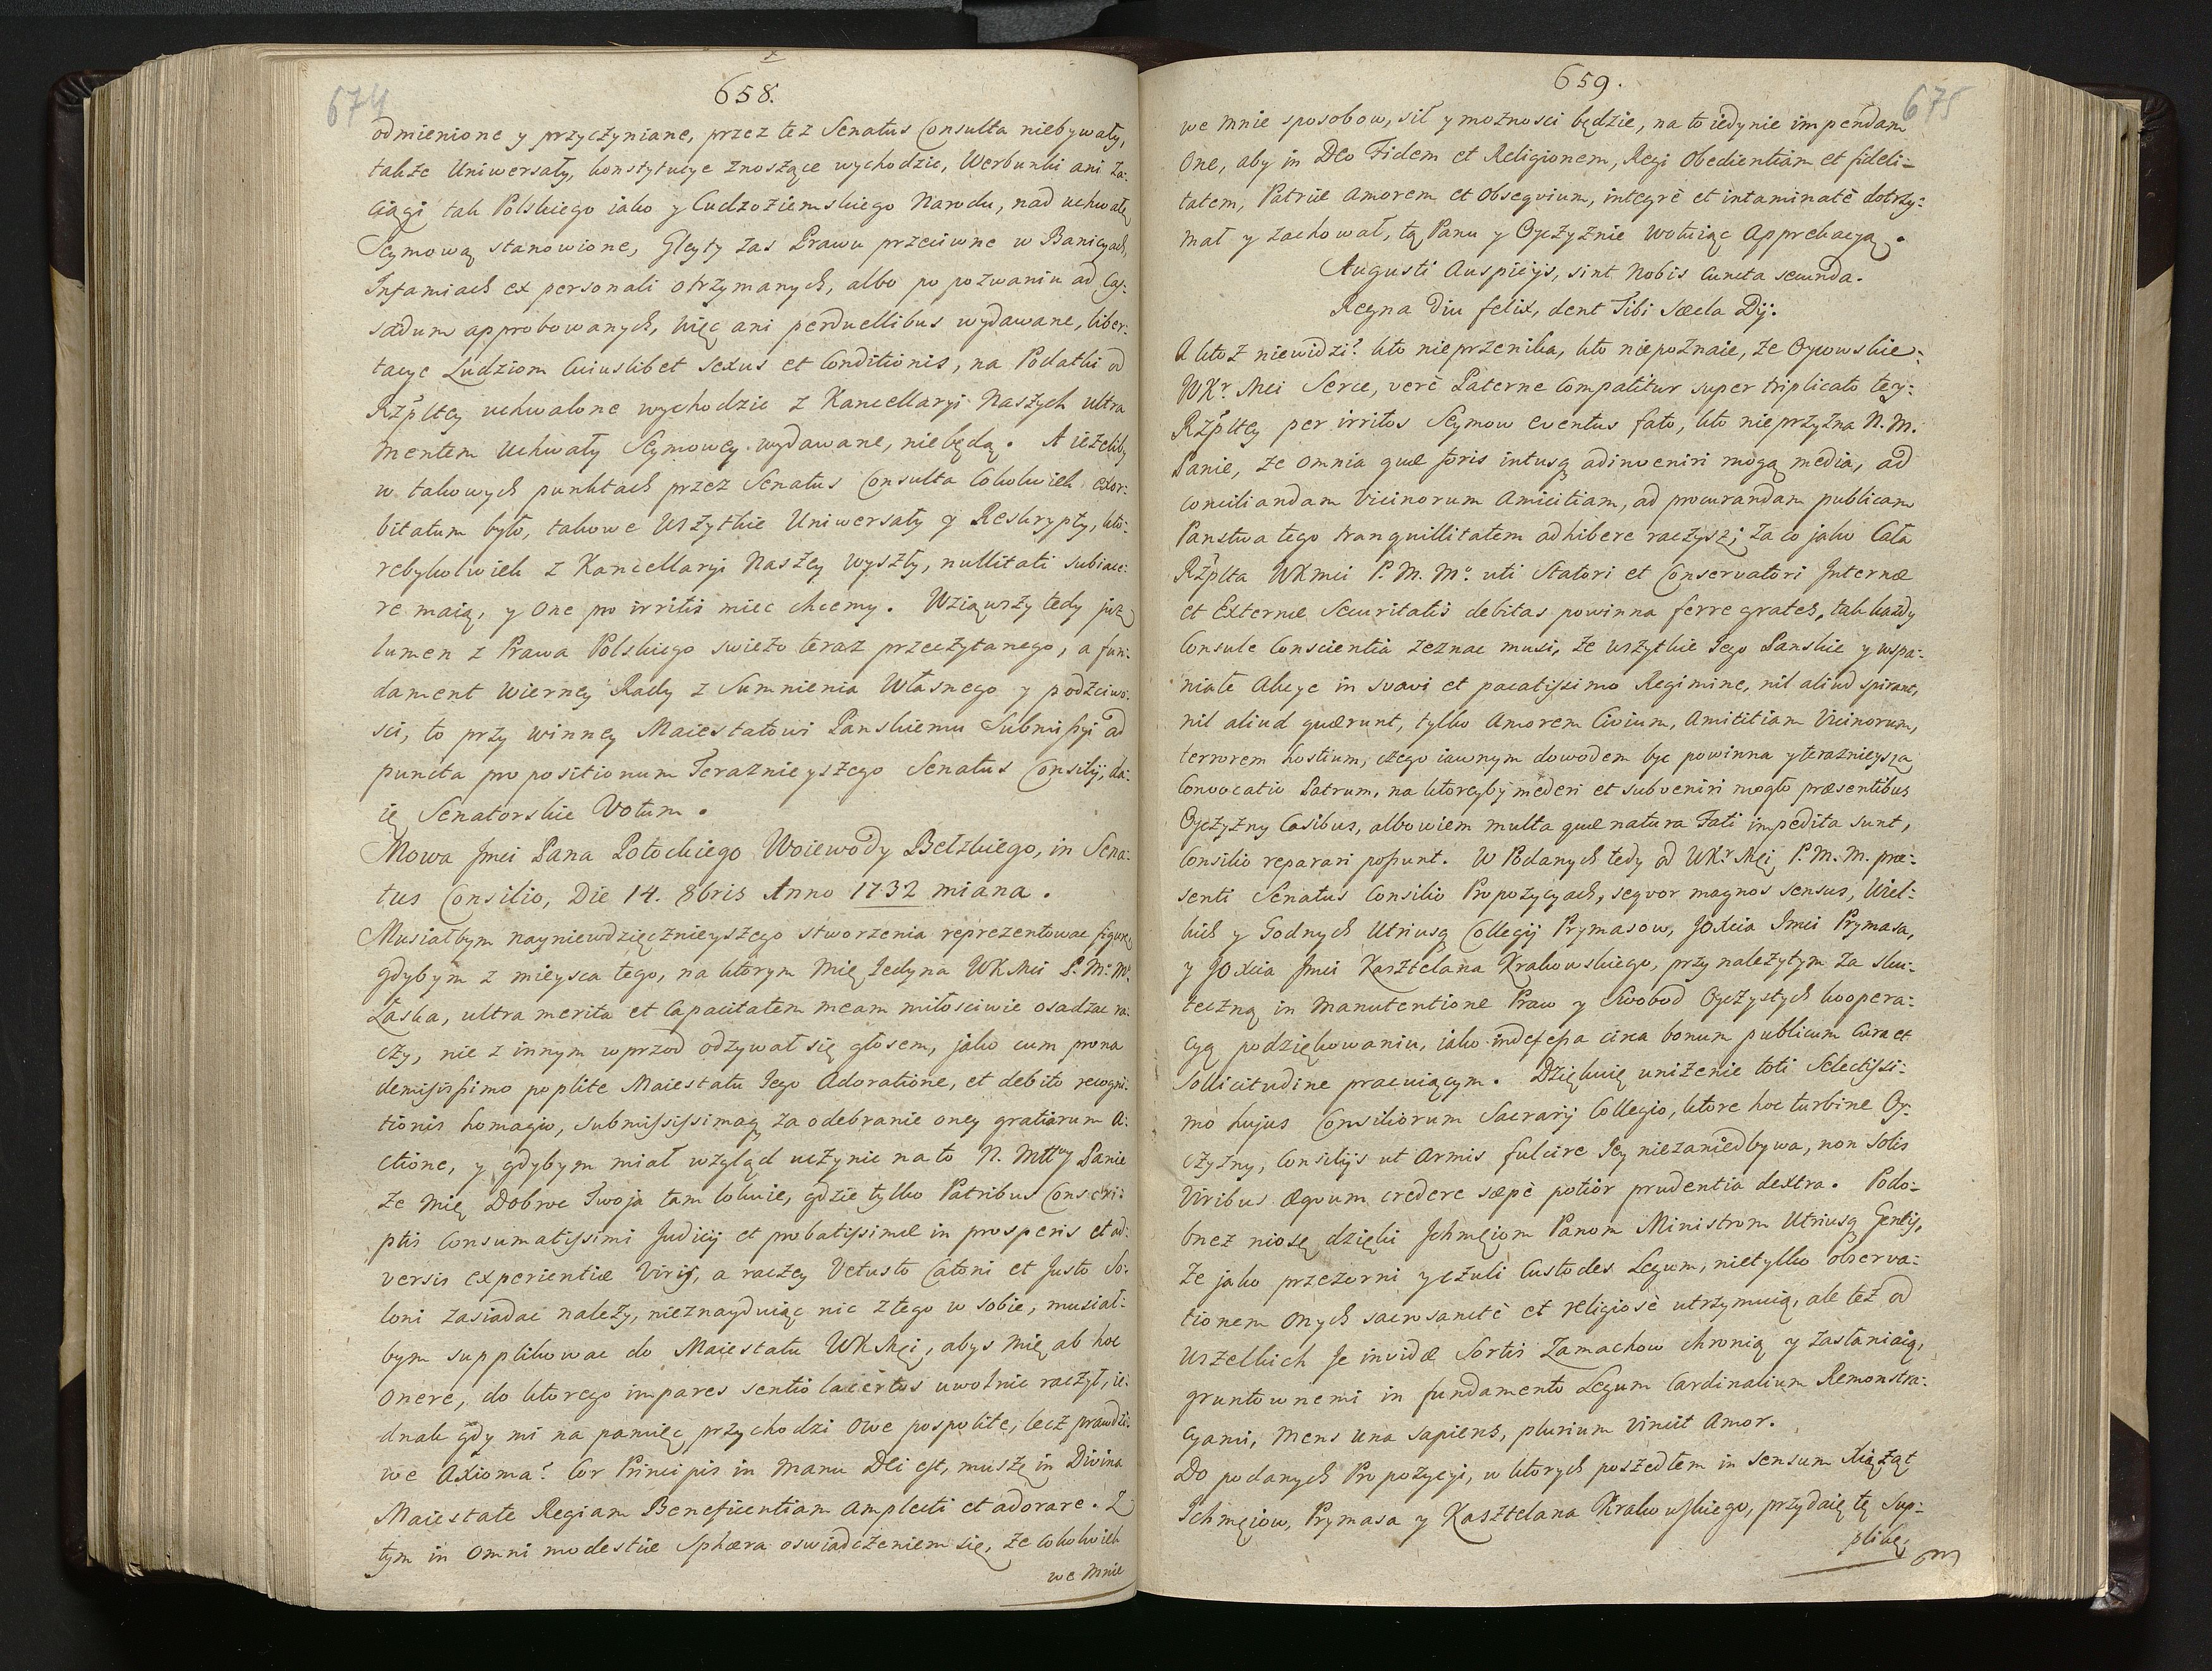 658.
674
odmienione y przyczyniane, przez też Senatus Consulta niebywały,
także Uniwersały, konstytucye znoszące wychodzic, Werbunki ani za-
ciągi tak Polskiego iako y Cudzoziemskiego Narodu, nad uchwałę
Seymową stanowione, Gleyty zas Prawu przeciwne w Banicyach,
Infamiach ex personali otrzymanych, albo po pozwaniu ad Cas-
sadum approbowanych, więc ani perduellibus wydawane, liber-
tacye Ludziom Cuiuslibet Sexus et Conditionis, na Podatki od
Rzpltey uchwalone wychodzic z Kancellaryi Naszych ultra
mentem uchwały Seymowey wydawane, niebędą. A ieżeliby
w takowych punktach przez Senatus Consulta Cokolwiek exor-
bitatum było, takowe Wszytkie Uniwersały y Reskrypty, kto-
rebykolwiek z Kancellaryi Naszey wyszły, nullitati subiace-
re maią, y One pro irritis miec chcemy. Wziąwszy tedy już
lumen z Prawa Polskiego swieżo teraz przeczytanego, a fun-
dament wierney Rady z Sumnienia Własnego y podzciwo-
sci, to przy winney Maiestatowi Panskiemu Submissyi ad
puncta propositionum Terazniejszego Senatus Consilij, da-
ię Senatorskie Votum.
Mowa Jmci Pana Potockiego Woiewody Bełzkiego, in Sena-
tus Consilio, Die 14. 8bris Anno 1732 miana.
Musiałbym nayniewdzięcznieyszego stworzenia reprezentowac figurę
gdybym z mieysca tego, na ktorym mię Jedyna WKMci P. M. M.
Łaska, ultra merita et Capacitatem meam miłosciwie osadzac ra-
czy, nie z innym wprzod odzywał się głosem, jako cum prona
demississimo poplite Maiestatu Jego Adoratione, et debito recogni-
tionis homagio, submississimaq za odebranie oney gratiarum a-
ctione, y gdybym miał wzgląd uczynic na to N. Mttwy Panie
że mię Dobroc Twoja tam lokuie, gdzie tylko Patribus Conscri-
ptis Consumatissimi Judicij et probatissimæ in prosperis et ad-
versis experientiæ Viris, a raczey Vetusto Catoni et Justo So-
loni zasiadac należy, nieznayduiąc nic z tego w sobie, musiał-
bym supplikowac do Maiestatu WKMci, abys mię ab hoc
onere, do ktorego impares sentio lacertos uwolnic raczył, ie-
dnak gdy mi na pamięc przychodzi owe pospolite, lecz prawdzi-
we Axioma? Cor Principis in manu Dei est, muszę in Divina
Maiestate Regiam Beneficentiam Amplecti et adorare. Z
tym in omni modestiæ Sphæra oswiadczeniem się, że Cokolwiek
we mnie
659.
675
we mnie sposobow, sił y możnosci będzie, na to iedynie impendam
One, aby in Deo Fidem et Religionem, Regi Obedientiam et fideli-
tatem, Patriæ Amorem et Obsequium, integrè et intaminatè dotrzy-
mał y zachował, tą Panu y Oyczyznie wotuiąc Apprekacyą.
Augusti Auspicijs, sint Nobis Cuncta secunda.
Regna Diu felix, dent Tibi Sæcla Dij.
A ktoż niewidzi? kto nieprzenika, kto niepoznaie, że Oycowskie
WKr. Mci Serce, verè Paterne Compatitur super triplicato tey-
Rzpltey per irritos Seymow eventus fato, kto nieprzyzna N. M.
Panie, że omnia quæ foris intusq adinveniri mogą media, ad
conciliandam Vicinorum Amicitiam, ad procurandam publicam
Panstwa tego tranquillitatem adhibere raczysz; za co jako Cała
Rzplta WKmci P. M. M. uti Statori et Conservatori Internæ
et Externæ Securitatis debitas powinna ferre grates, tak każdy
Consule Conscientia zeznac musi, że wszytkie Jego Panskie y wspa-
niałe Akcye in svavi et pacatissimo Regimine, nil aliud spirant,
nil aliud quærunt, tylko Amorem Civium, Amicitiam Vicinorum,
terrorem hostium, czego iawnym dowodem byc powinna y teraznieysza
Convocatio Patrum, na ktoreyby mederi et subveniri mogło præsentibus
Oyczyzny Casibus, albowiem multa quæ natura Fati impedita sunt,
Consilio reparari possunt. W Podanych tedy od WKr Mci P. M. M. præ-
senti Senatus Consilio Propozycyach, seqvor magnos sensus, Wiel-
kich y Godnych Utriusq Collegij Prymasow, JOXcia Jmci Prymasa,
y JOXcia Jmci Kasztelana Krakowskiego, przy należytym za sku-
teczną in Manutentione Praw y Swobod Oyczystych koopera-
cyą podziękowaniu, iako indefessa circa bonum publicum Cura et
Sollicitudine pracuiącym. Dziękuię uniżenie toti Selectissi-
mo hujus Consiliorum Sacrarij Collegio, ktore hoc turbine Oy-
czyzny, Consilijs ut Armis fulcire Jey niezaniedbywa, non Solis
Viribus æqvum credere sæpè potior prudentia dextra. Podo-
bneż niosę dzięki Jchmciom Panom Ministrom Utriusq Gentis,
że jako przezorni y czuli Custodes Legum, nietylko observa-
tionem onych sacrosanctè et religiosè utrzymuią, ale też od
wszelkich Je invidæ Sortis Zamachow chronią y zasłaniaią,
gruntownemi in fundamento Legum Cardinalium Remonstra-
cyami, Mens una sapiens, plurium vincit Amor.
Do podanych Propozycyi, w ktorych poszedłem in sensum Xiążąt
Jchmciow, Prymasa y Kasztelana Krakowskiego, przydaię tę Sup-
plikę,